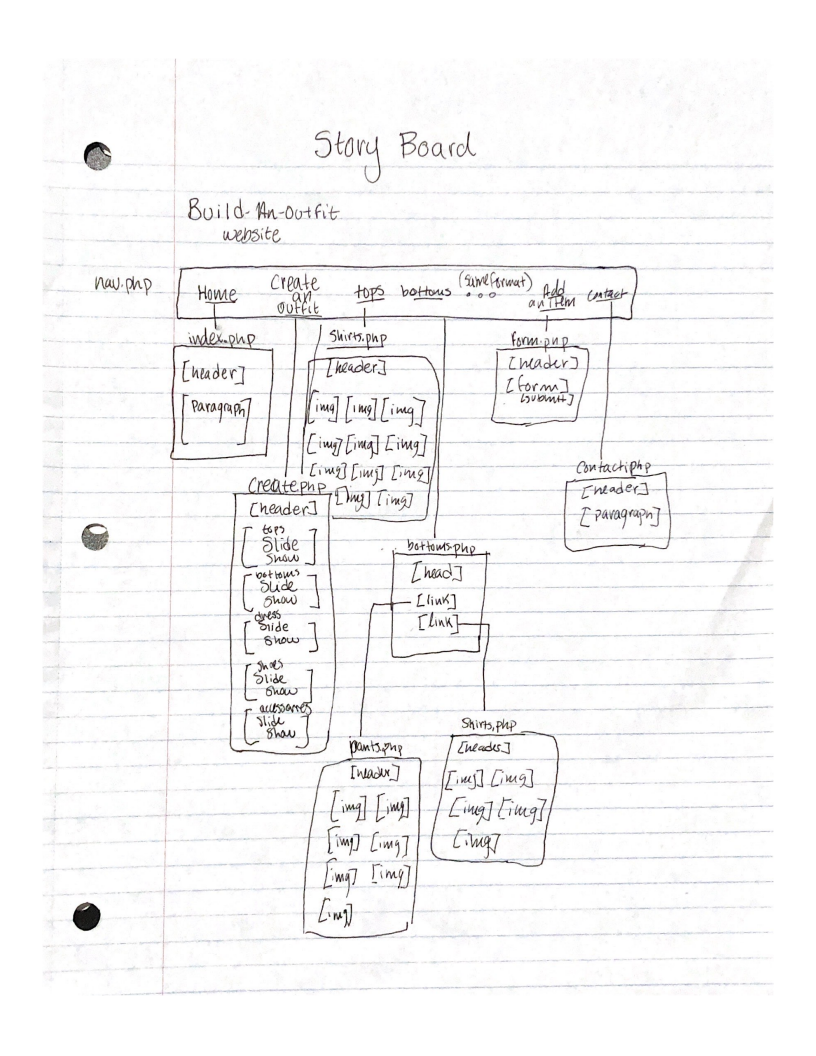 Story Board
Build-An-Outfit
website
nav.php
Home Create an outfit tops bottoms (same format) ... Add an Item Contact
index.php
[header]
[Paragraph]
Shirts.php
[header]
[img] [img] [img]
[img] [img] [img]
[img] [img] [img]
[img] [img]
form.php
[header]
[form]
[submit]
Contact.php
[header]
[paragraph]
Create.php
[header]
[tops
Slide
Show]
[bottoms
Slide
Show]
[dress
Slide
Show]
[shoes
Slide
Show]
[
Slide
Show]
bottoms.php
[head]
[link]
[link]
pants.php
[header]
[img] [img]
[img] [img]
[img] [img]
[img]
Shirts.php
[header]
[img] [img]
[img] [img]
[img]